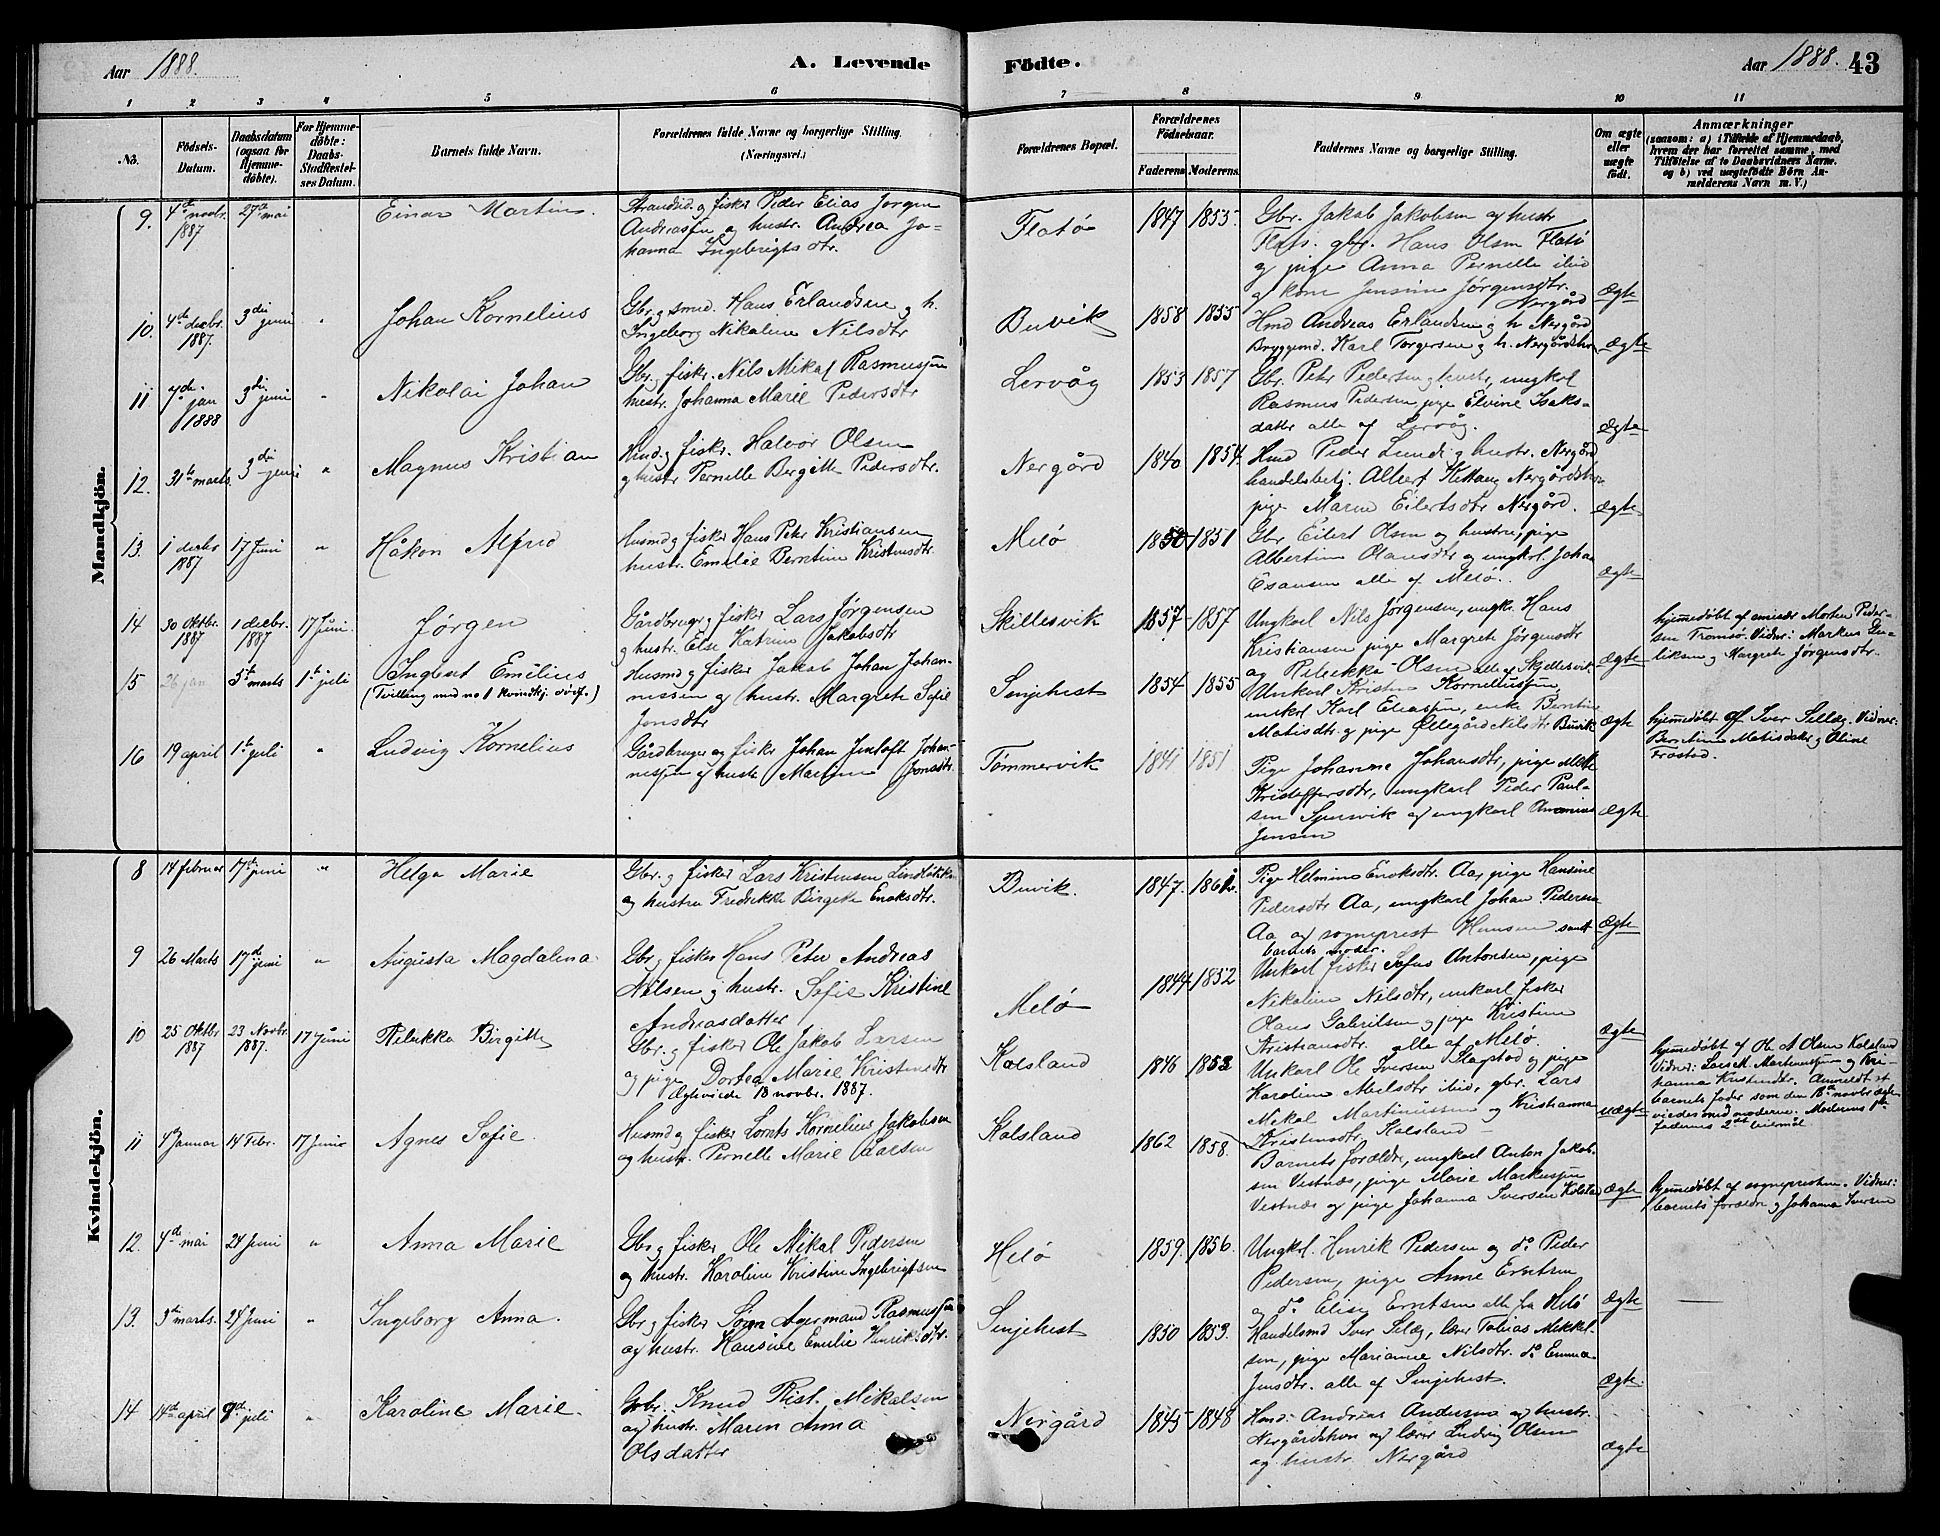 Aar 1888.
A. Levende
Födte.
Aar 1888. 43
1 2 3 4 5 6 7 8 9 10 11
No.
Födsels-Datum.
Daabsdatum (ogsaa for Hjemme-döbte).
For Hjemme-döbte: Daabs-Stadfæstel-ses Datum.
Barnets fulde Navn.
Forældrenes fulde Navne og borgerlige Stilling. (Næringsvei.)
Forældrenes Bopæl.
Forældrenes Födselsaar.
Faderens Moderens.
Faddernes Navne og borgerlige Stilling.
Om ægte eller uægte födt.
Anmærkninger
(saasom: a) i Tilfælde af Hjemmedaab,
hvem der har forrettet samme, med
Tilföielse af to Daabsvidners Navne.
og b) ved uægtefödte Börn An-
melderens Navn m. V.)
Mandkjön.
9. 4de novbr. 1887 27de mai Einar Martin
Strandsid. og fisker Peder Elias Jørgen
Andreassen og hustr. Andrea Jo-
hanna Ingebrigtsdtr.
Flatø 1847 1855
Gbr. Jakob Jakobsen og hustr
Flatø. gbr. Hans Olsen Flatø
og pige Anna Pernelle ibid
og kone Jensine Jørgensdtr. Nergård
ægte
10. 4de decbr. 1887. 3die juni " Johan Kornelius
Gbr. og smed. Hans Erlandsen og h.
Ingeborg Nikoline Nilsdtr
Buvik 1858 1855
Hmd Andreas Erlandsen og h. Nergård
Bryggemd. Karl Torgersen og h. Nergårdshvn
ægte
11 7de jan 1888 3die juni " Nikolai Johan
Gbr. og fiskr. Nils Mikal Rasmussen
hustr. Johanna Marie Pedersdtr
Lervåg 1853 1857
Gbr. Peter Pedersen og hustr, ungkol
Rasmus Pedersen pige Elvine Isaks-
datter alle af Lervåg.
ægte
12. 31te marts 3die juni " Magnus Kristian
Hmd. og fiskr. Halvor Olsen
og hustr Pernelle Bergitte Pedersdtr.
Nergård 1840 1854.
Hmd Peder Lund og hustr. Nergård
handelsbetj. Albert Kettang Nergårdshvn
pige Maren Eilertsdtr Nergård.
ægte
13. 1 decbr 1887 17 Juni " Håkon Alfred
Husmd og fisker Hans Peter Kristiansen
hustr. Emilie Berntine Kristensdtr.
Melø 1850 1851
Gbr Eilert Olsen og hustru, pige
Albertine Olausdtr og ungkrl. Johan
Esansen alle af Melø.
ægte
14 30 Oktbr. 1887 1 decbr. 1887 17 Juni. Jørgen
Gårdbruger og fisker Lars Jørgensen
og hustr. Else Katrine Jakobsdtr
Skillesvik 1857 1857
Ungkarl Nils Jørgensen, ungkr. Hans
Kristiansen pige Margrete Jørgensdtr
og Rebekka Olsen alle af Skjellesvik
ægte
hjemmedøbt af emisær Morten Peder-
sen Tromsø. Vidner: Markus Gu-
liksen og Margrete Jørgensdtr.
15 26 jan 5te marts 1te juli Ingleut Emilius
(Tvilling med no 1 kvindkj. dødf.)
Husmd og fisker Jakob Johan Johan-
nessen og hustr. Margrete Sofie
Jonsdtr
Senjehest 1854 1855
Unkarl Kristen Korneliussen,
unkrl Karl Eliassen, enke Berntine
Matisdtr. og pige Ollegård Nilsdtr Buvik
ægte
hjemmedøbt af Iver Selæg. Vidner:
Berntine Matisdatter og Oline
Frostad.
16 19 april 1te juli " Ludvig Kornelius
Gårdbruger og fisker Johan Jenloft Johan-
nessen og hustr Martine Jonsdtr.
Tømmervik 1841 1851
Pige Johanne Johansdtr, pige Mette
Kristoffersdtr, ungkarl Peder Paul-
sen Sjursvik og ungkarl
Jensen
ægte
Kvindekjön.
8 14 februar 17de juni " Helga Marie
Gbr. og fisker Lars Kristensen
og hustru Fredrikke Birgitte Enoksdtr.
Buvik. 1847. 1861.
Pige Helmine Enoksdtr. Aa, pige Hansine
Pedersdtr Aa, ungkarl Johan Pedersen
Aa og sogneprest Hansen samt
barnets moder.
ægte
9 26 Marts 17de juni " Augusta Magdalena
Gbr. og fisker Hans Peter Andreas
Nilsen og hustr. Sofie Kristine
Andreasdatter
Melø 1844 1852
Unkarl fisker Sofus Antonsen, pige
Nikoline Nilsdtr, unkarl fisker
Olaus Gabrielsen og pige Kristine
Kristiansdtr. alle af Melø.
ægte
10 25 Oktbr 1887 23 Novbr. 1887. 17 Juni Rebekka Birgitte
Gbr. og fisker Ole Jakob Larsen
og pige Dortea Marie Kristensdtr
Ægteviede 18 novbr. 1887.
Kolsland 1846 1853
Unkarl Ole Iversen Slagstad og pige
Karoline Meilsdtr ibid, gbr. Lars
Mikal Martinussen og Kristianna
Kristensdtr. Kolsland
uægte
hjemmedøbt af Ole A Olsen Kolsland
Vidner: Lars M. Martinussen og Kri-
hanna Kristensdtr. Anmeldt af
barnets fader som den 18de novbr ægte-
viedes med moderen. Moderens 1ste
faderens 2det leiermål
11 4de Januar 14 Febr. 17 Juni Agnes Sofie.
Husmd og fisker Lornts Kornelius Jakobsen
og hustr. Pernelle Marie Larsen
Kolsland 1862 1858.
Barnets forældre, ungkarl Anton Jakob-
sen Vestnæs, pige Marie Markussen
Vestnæs og pige Johanna Iversen Kolsland
ægte
hjemmedøbt af sognepresten. Vidner:
barnets forældre og Johanna Iversen
12. 4de mai 24 Juni " Anna Marie
Gbr og fisker Ole Mikal Pedersen
og hustr. Karoline Kristine Ingebrigtsen
Helø 1859. 1856.
Ungkrl. Henrik Pedersen og do. Peder
Pedersen, pige Anne Erntsen
og do. Elise Erntsen alle fra Helø
ægte
13. 3die marts. 24 Juni " Ingeborg Anna.
Gbr. og fisker Søren Agermand Rasmussen
og hustr. Hansine Emilie Henriksdtr.
Senjehest 1850 1853.
Handelsmd Iver Selæg, lærer Tobias Mikkel-
sen, pige Marianne Nilsdtr. do. Emma
Jensdtr. alle af Senjehest.
ægte.
14 14de april 9de juli " Karoline Marie.
Gbr. Knud Rist. Mikalsen
og hustr. Maren Anna
Olsdatter
Nergård 1845 1848
Hmd. Andreas Andersen og hustr.
Nergårdshvn og lærer Ludvig Olsen
og hustr. Nergård
ægte